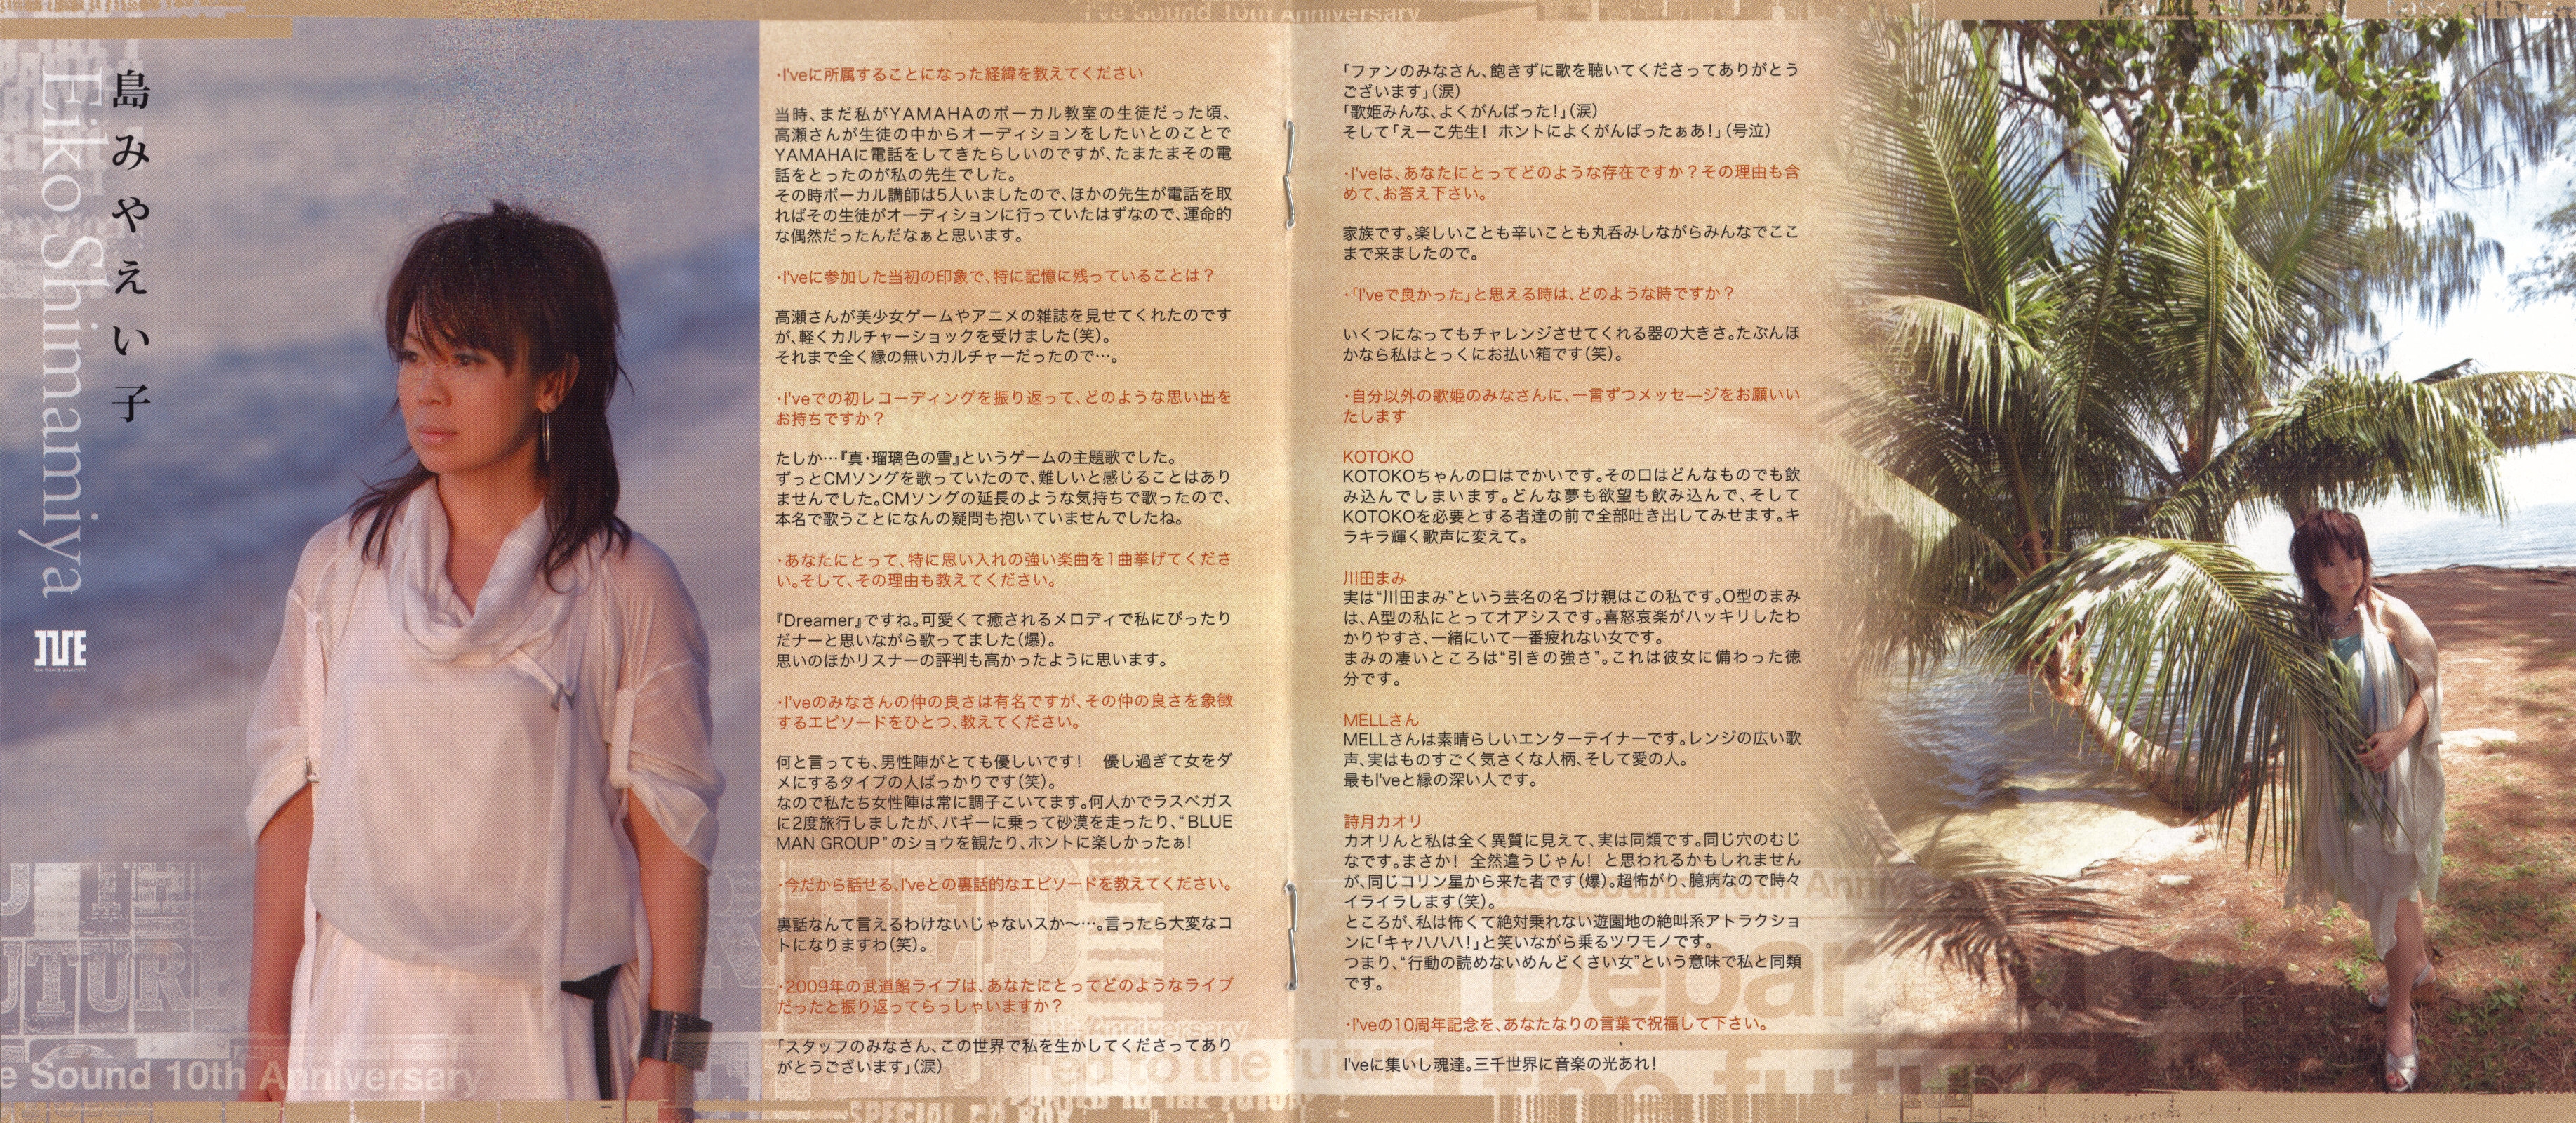 I've Sound 10th Anniversary
島みやえい子
Eiko Shimamiya
I'VE
・I'veに所属することになった経緯を教えてください
当時、まだ私がYAMAHAのボーカル教室の生徒だった頃、
高瀬さんが生徒の中からオーディションをしたいとのことで
YAMAHAに電話をしてきたらしいのですが、たまたまその電
話をとったのが私の先生でした。
その時ボーカル講師は5人いましたので、ほかの先生が電話を取
ればその生徒がオーディションに行っていたはずなので、運命的
な偶然だったんだなぁと思います。
・I'veに参加した当初の印象で、特に記憶に残っていることは？
高瀬さんが美少女ゲームやアニメの雑誌を見せてくれたのです
が、軽くカルチャーショックを受けました（笑）。
それまで全く縁の無いカルチャーだったので…。
・I'veでの初レコーディングを振り返って、どのような思い出を
お持ちですか？
たしか…『真・瑠璃色の雪』というゲームの主題歌でした。
ずっとCMソングを歌っていたので、難しいと感じることはあり
ませんでした。CMソングの延長のような気持ちで歌ったので、
本名で歌うことになんの疑問も抱いていませんでしたね。
・あなたにとって、特に思い入れの強い楽曲を1曲挙げてくださ
い。そして、その理由も教えてください。
『Dreamer』ですね。可愛くて癒されるメロディで私にぴったり
だナーと思いながら歌ってました（爆）。
思いのほかリスナーの評判も高かったように思います。
・I'veのみなさんの仲の良さは有名ですが、その仲の良さを象徴
するエピソードをひとつ、教えてください。
何と言っても、男性陣がとても優しいです！　優し過ぎて女をダ
メにするタイプの人ばっかりです（笑）。
なので私たち女性陣は常に調子こいてます。何人かでラスベガス
に2度旅行しましたが、バギーに乗って砂漠を走ったり、“BLUE
MAN GROUP”のショウを観たり、ホントに楽しかったぁ！
・今だから話せる、I'veとの裏話的なエピソードを教えてください。
裏話なんて言えるわけないじゃないスか〜…。言ったら大変なコ
トになりますわ（笑）。
・2009年の武道館ライブは、あなたにとってどのようなライブ
だったと振り返ってらっしゃいますか？
「スタッフのみなさん、この世界で私を生かしてくださってあり
がとうございます」（涙）
「ファンのみなさん、飽きずに歌を聴いてくださってありがとう
ございます」（涙）
「歌姫みんな、よくがんばった！」（涙）
そして「えーこ先生！ ホントによくがんばったぁあ！」（号泣）
・I'veは、あなたにとってどのような存在ですか？その理由も含
めて、お答え下さい。
家族です。楽しいことも辛いことも丸呑みしながらみんなでここ
まで来ましたので。
・「I'veで良かった」と思える時は、どのような時ですか？
いくつになってもチャレンジさせてくれる器の大きさ。たぶんほ
かなら私はとっくにお払い箱です（笑）。
・自分以外の歌姫のみなさんに、一言ずつメッセージをお願いい
たします
KOTOKO
KOTOKOちゃんの口はでかいです。その口はどんなものでも飲
み込んでしまいます。どんな夢も欲望も飲み込んで、そして
KOTOKOを必要とする者達の前で全部吐き出してみせます。キ
ラキラ輝く歌声に変えて。
川田まみ
実は“川田まみ”という芸名の名づけ親はこの私です。O型のまみ
は、A型の私にとってオアシスです。喜怒哀楽がハッキリしたわ
かりやすさ、一緒にいて一番疲れない女です。
まみの凄いところは“引きの強さ”。これは彼女に備わった徳
分です。
MELLさん
MELLさんは素晴らしいエンターテイナーです。レンジの広い歌
声、実はものすごく気さくな人柄、そして愛の人。
最もI'veと縁の深い人です。
詩月カオリ
カオリんと私は全く異質に見えて、実は同類です。同じ穴のむじ
なです。まさか！ 全然違うじゃん！ と思われるかもしれません
が、同じコリン星から来た者です（爆）。超怖がり、臆病なので時々
イライラします（笑）。
ところが、私は怖くて絶対乗れない遊園地の絶叫系アトラクショ
ンに「キャハハハ！」と笑いながら乗るツワモノです。
つまり、“行動の読めないめんどくさい女”という意味で私と同類
です。
・I'veの10周年記念を、あなたなりの言葉で祝福して下さい。
I'veに集いし魂達。三千世界に音楽の光あれ！
e Sound 10th Anniversary
Depar
the futu